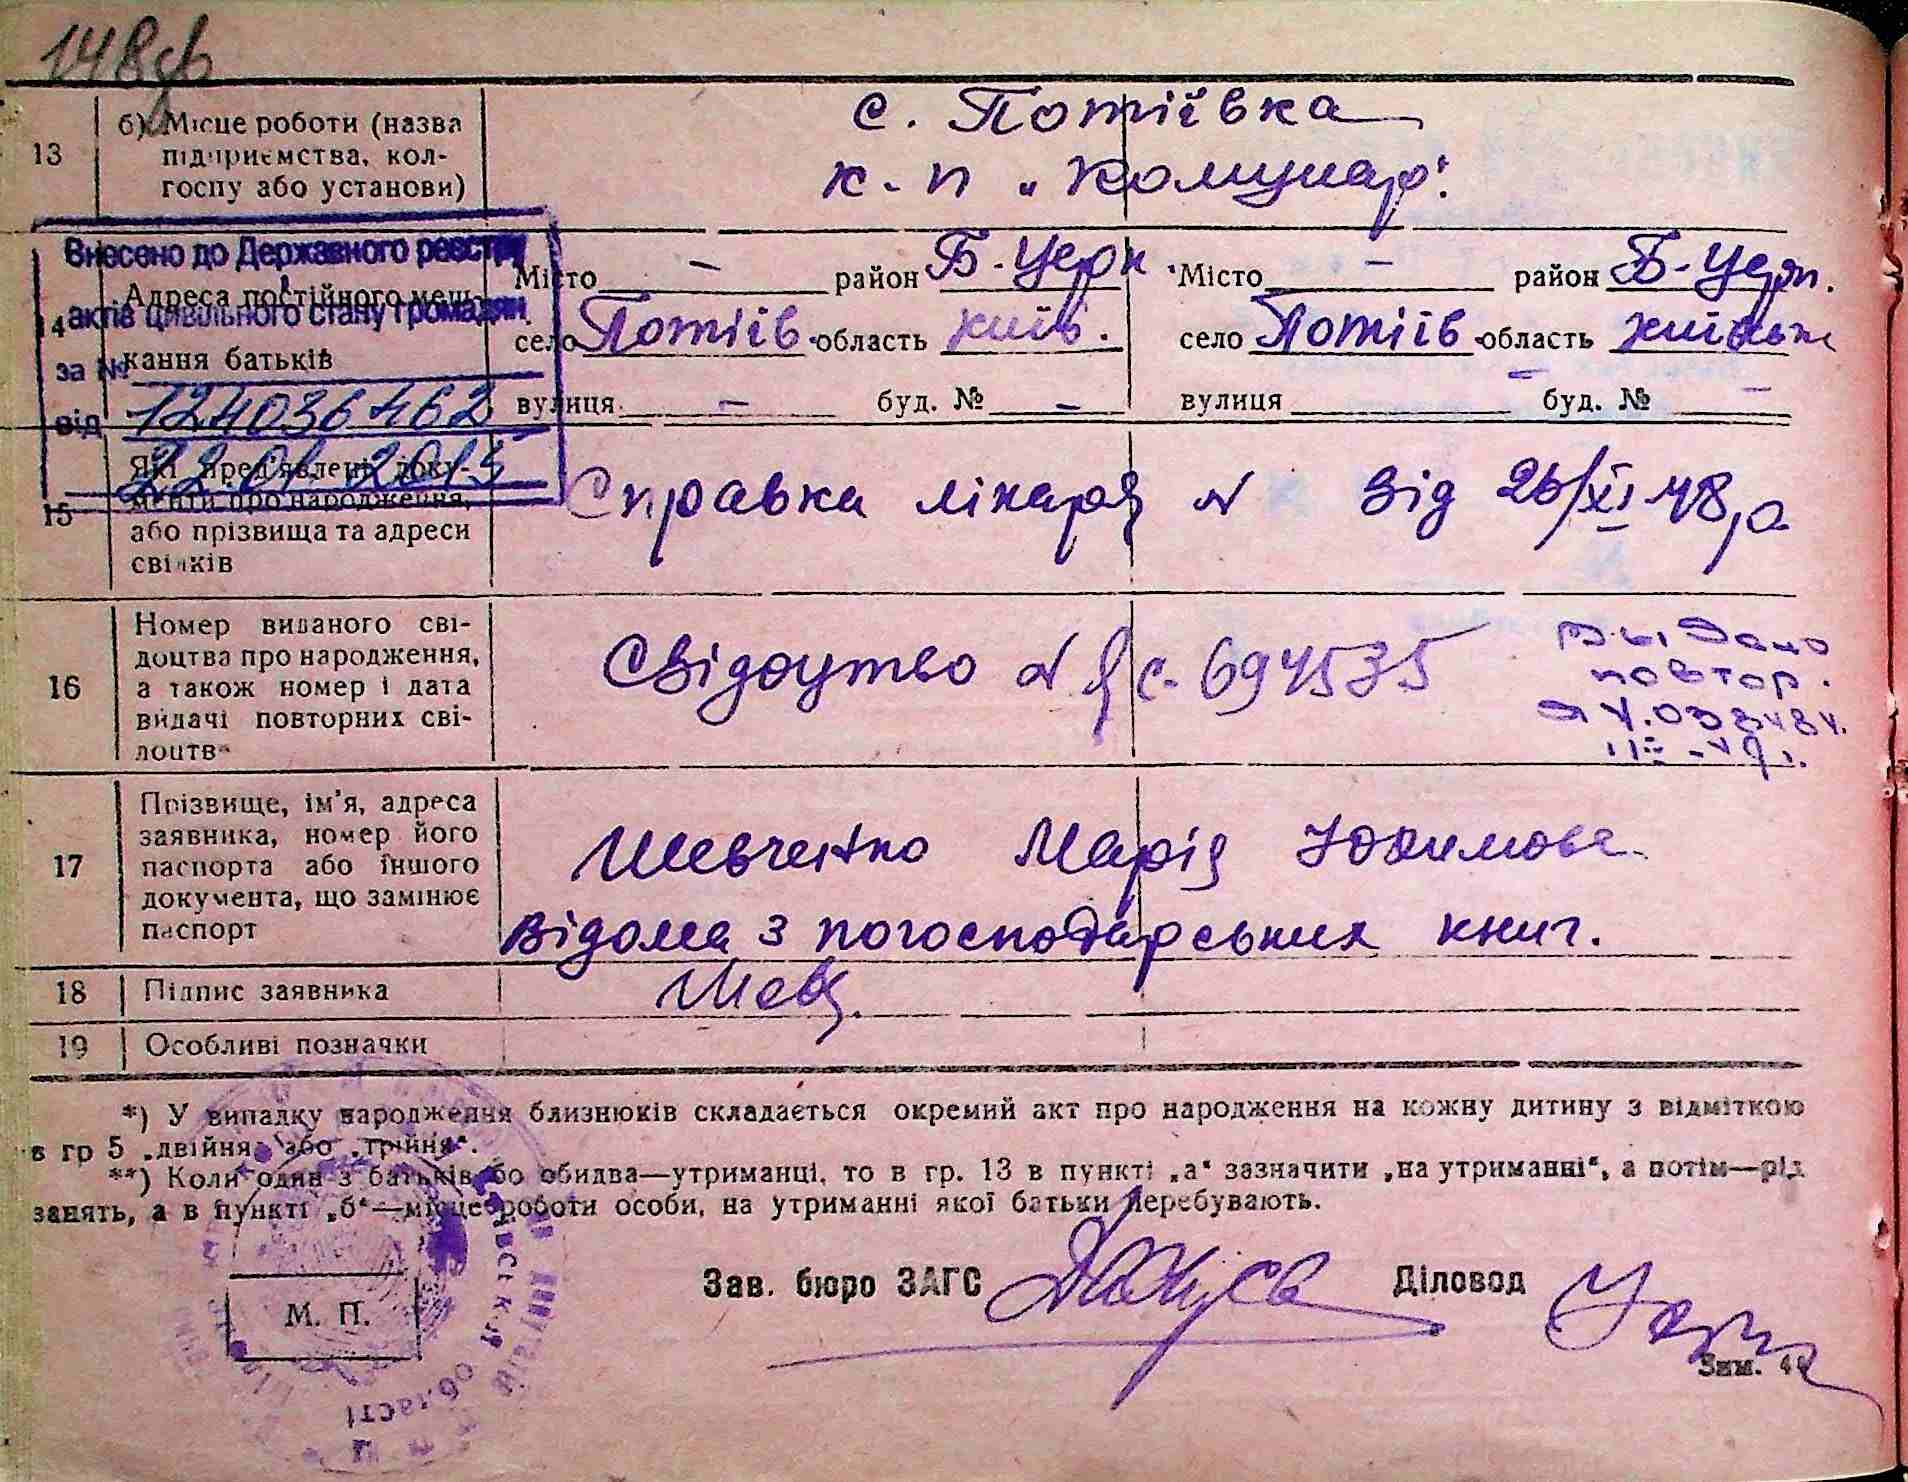 148
13
б) Місце роботи (назва
підприємства, кол-
госпу або установи)
с. Потіївка
к-п „Комунар".
Внесено до Державного реєстру
актів цивільного стану громадян
за № 124036462
від 22.01.2013
14
Адреса постійного меш-
кання батьків
Місто — район Б-Церк Місто — район Б-Церк.
село Потіїв. область Київ. село Потіїв область Київськ
вулиця — буд. № — вулиця — буд. № —
15
Які пред'явлені доку-
менти про народження,
або прізвища та адреси
свідків
Справка лікаря N від 26/XI 48 р
16
Номер виданого сві-
доцтва про народження,
а також номер і дата
видачі повторних сві-
доцтв
Свідоцтво N Яс-694535
Выдано
повтор.
17
Прізвище, ім'я, адреса
заявника, номер його
паспорта або іншого
документа, що замінює
паспорт
Шевченко Марія Юхимовс.
Відома з погосподарських книг.
18 Підпис заявника
Шевч.
19 Особливі позначки
*) У випадку народження близнюків складається окремий акт про народження на кожну дитину з відміткою
в гр 5 „двійня" або „трійня".
**) Коли один з батьків або обидва—утриманці, то в гр. 13 в пункті „а" зазначити „на утриманні", а потім—рід
занять, а в пункті „б"—місце роботи особи, на утриманні якої батьки перебувають.
Зав. бюро ЗАГС Діловод
М. П.
області
Зим. 44